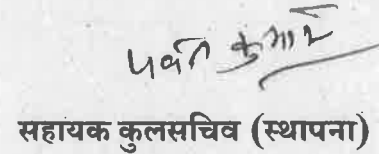 कुमार
सहायक कुलसचिव (स्थापना)